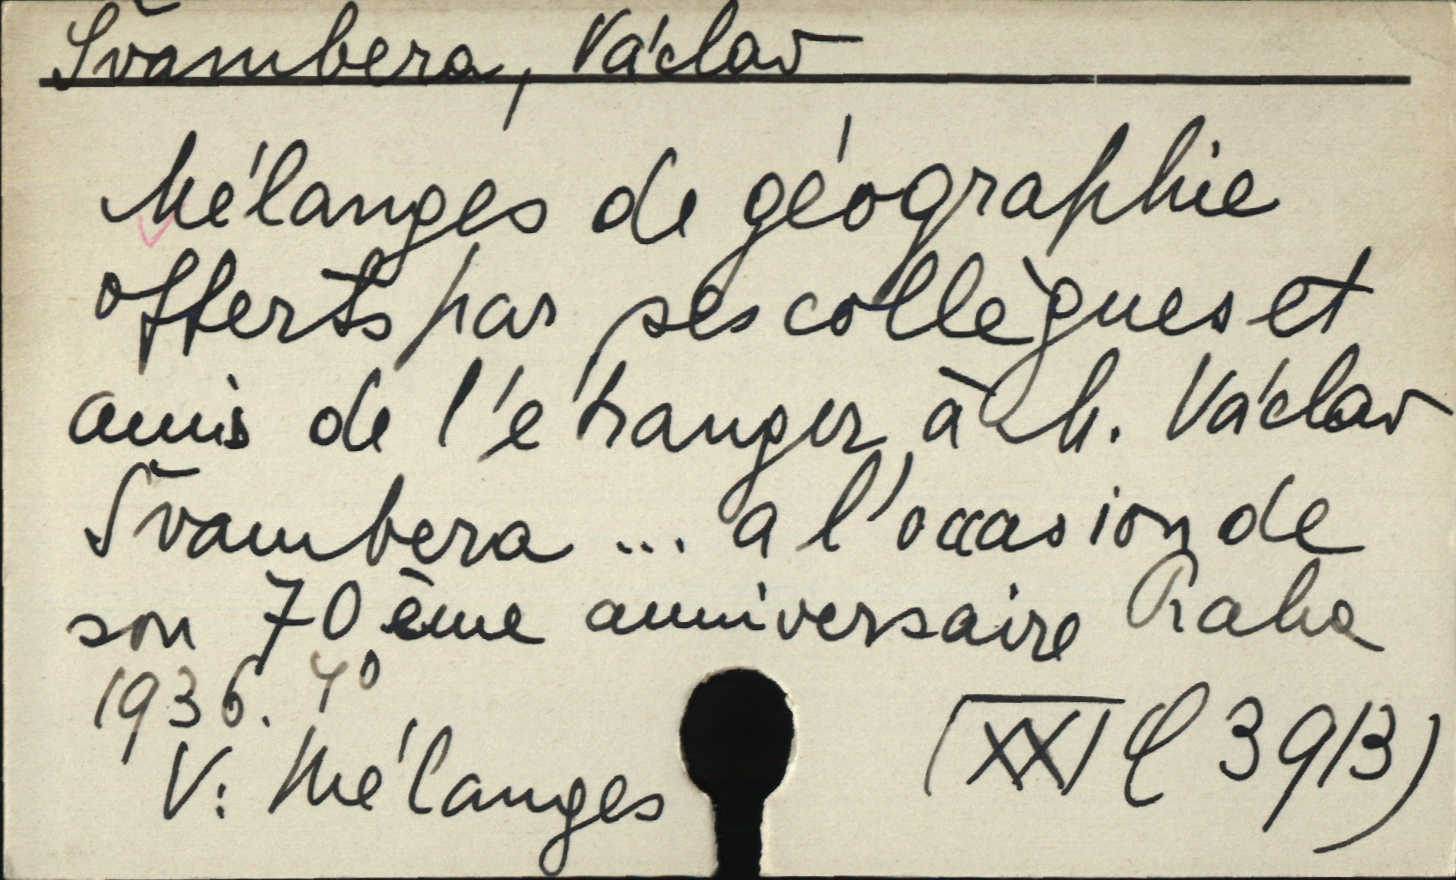 Švambera, Václav
Mélanges de géographie
offerts par ses collègues et
amis de l'étranger à M. Václav
Švambera ... a l'occasion de
son 70ème anniversaire Praha
1936. 4º
V: Mélanges
(XXI C 3913)